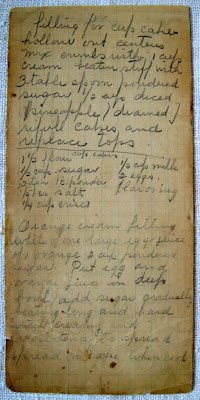 filling for cup cake
hollow out centers
mix crumbs with 1 cup
cream beaten stiff with
3 table spoon powdered
sugar 1/2 cup diced
pineapple (drained)
refill cakes and
replace tops
cup cakes
1 1/2 flour 1/2 cup milk
1/2 cup sugar 2 eggs.
2 ten B powder flavoring
salt
1/4 cup crisco
Orange cream filling
white of one large egg juice
orange 3 cup powdered
sugar. Put egg and
orange juice in deep
bowl add sugar gradually
beating long and hard
until creamy and
spread
spread cake when cool